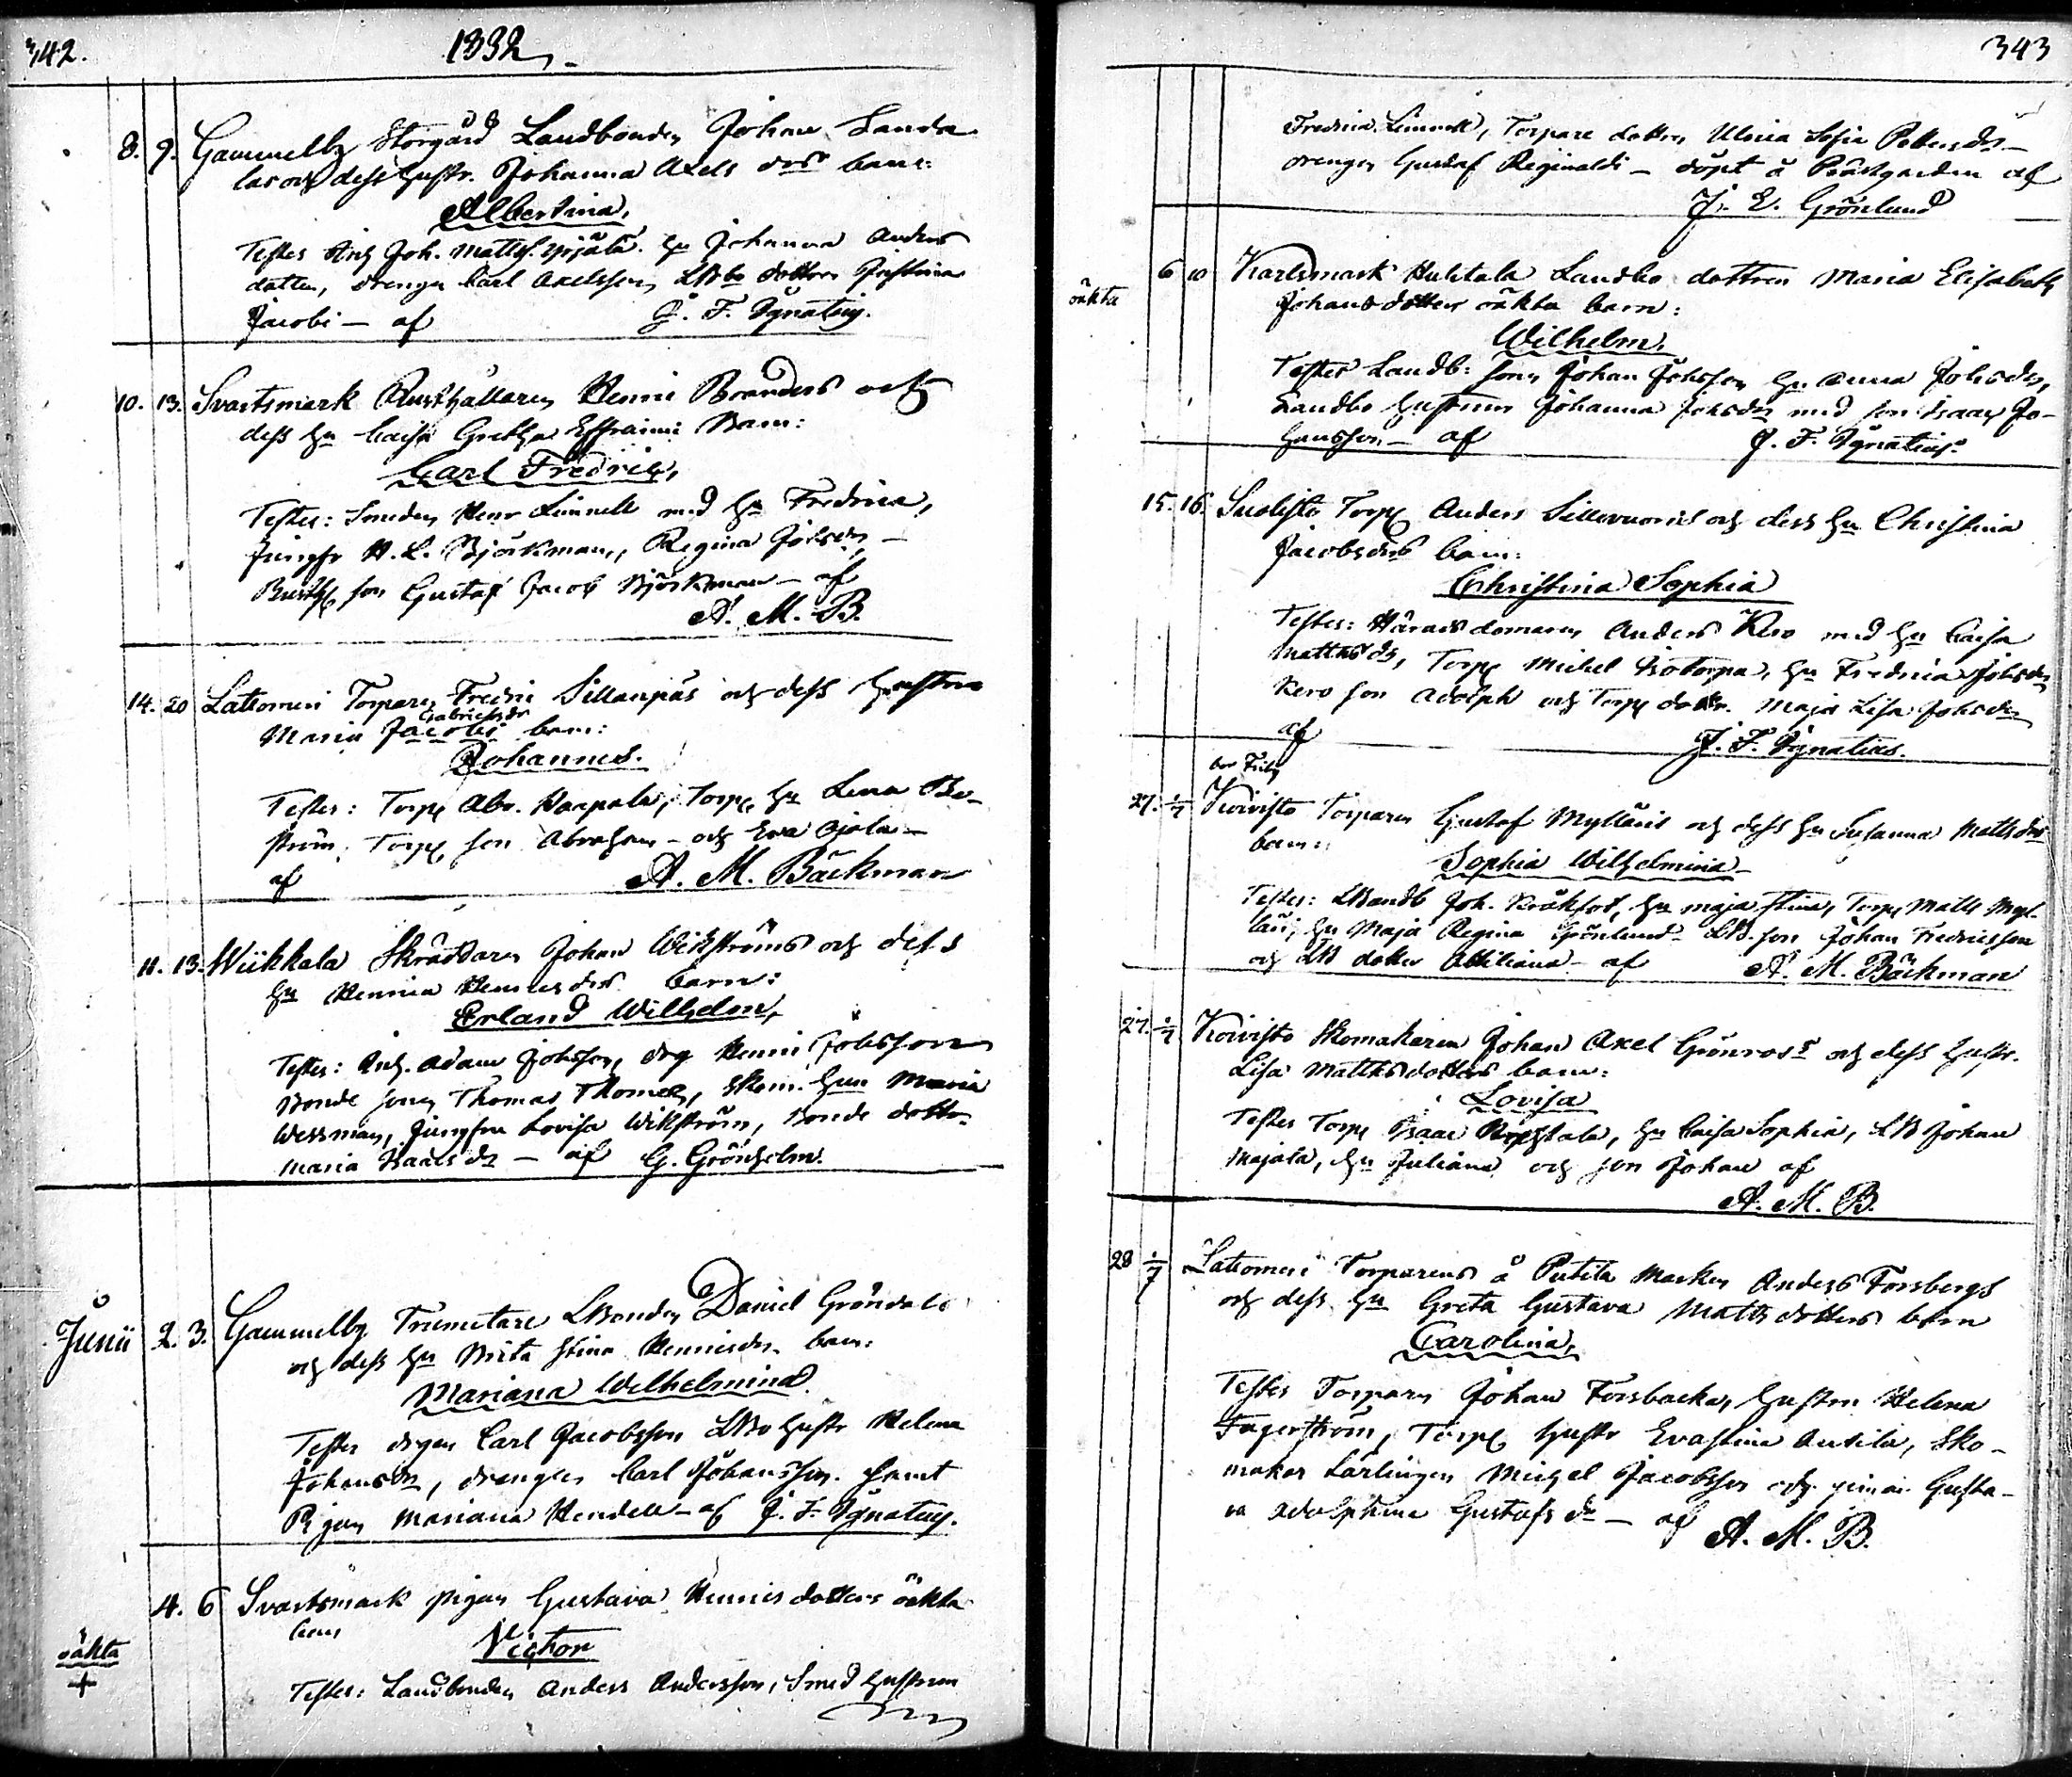 342.
1832,
8. 9. Gammelby Storgård Landbonden Johan Landa
las och dess hustr. Johanna Axels drs barn:
Albertina,
Testes Joh. Matts. hu Johanna Anders
dotter, drengen Carl Axelsson, LBo dottern Justina
Jacobi - af J. F. Ignatius.
10. 13. Svartsmark Rusthållaren Henric Branders och
dess hu Caisa Gretha Effraimi Barn:
Carl Fredric,
Testes: Smeden Henr Limnell med hu Fredrica,
Jungfr H. L. Björkman, Regina Johsdr, -
Rusth son Gustaf Jacob Björkman - af
A. M. B.
14. 20 Lattomeri Torparen Fredric Sillanpääs och dess hustru
Maria Jacobi Gabrielsdr barn:
Johannes.
Testes: Torp Abr. Haapala, Torp. hu Lena
ström, Torp son Abraham - och Eva Ojala -
af A. M. Bäckman
11. 13. Wiikkala Skräddaren Johan Wikströms och dess
hu Henrica Henricsdrs barn:
Erland Wilhelm,
Testes: Adam Johsson, drg Henric Johsson
Bonde sonen Thomas Thomes, skom. hun Maria
Wessman, Jungfru Lovisa Wikström, Bonde dottr.
Maria Isaacs dr - af G. Grönholm.
Junii 2. 3. Gammelby Trumetare LBonden Daniel Gröndals
och dess hu Brita Stina Henricsdr barn:
Mariana Wilhelmina
Testes drgen Carl Jacobsson LBo hustr Helena
Johansdr, drengen Carl Johansson samt
Pigan Mariana Hendell - af J. F. Ignatius.
4. 6 Svartsmark pigan Gustava Henrics dotters oäkta
barn
Victor
oäkta
+
Testes: Landbonden Anders Andersson, Smed hustrun
343
Fredrica Limnell, Torpare dottren Ulrica Sofia Pettersdr -
drengen Gustaf Reginaldi - döpt å Prästgården af
J. E. Grönlund
oäkta
6 10 Karlsmark Huhtala Landbo dottren Maria Elisabeth
Johans dotters oäkta barn:
Wilhelm.
Testes Landb: son Johan Johsson hu Anna Johsdr,
Landbo hustrun Johanna Johsdr med son Isaac Jo-
hansson - af J. F. Ignatius.
15. 16. Suolisto Torp Anders Sillevuoris och dess hu Christina
Jacobsdrs barn:
Christina Sophia
Testes: Häradsdomaren Anders Kero med hu Caisa
Mattsdr, Torp Michel Isotorpa, hu Fredrica Johsdr
Kero son Adolph och Torp dottr. Maja Lisa Johsdr
af J. F. Ignatius.
27. 1/7 Koivisto Torparen Gustaf Mylläris och dess hu Susanna Mattsdrs
barn:
Sophia Wilhelmina
Testes: LBondb Joh. Kråkfot, hu Maja Stina, Torp Matts Myl-
läri, hu Maja Regina Grönlund LB. son Johan Fredricsson
och LB dotter - af A. M. Bäckman
27. 1/7 Koivisto Skomakaren Johan Axel Grönroos och dess hustr.
Lisa Mattsdotters barn:
Lovisa
Testes Torp Isaac hu Caisa Sophia, LB Johan
Majala, hu Juliana och son Johan af
A. M. B.
28 1/7 Lattomeri Torparens å Putila Marken Anders Forsbergs
och dess hu Greta Gustava Mattsdotters barn
Carolina,
Testes Torparen Johan Forsbacka, hustrun Helena
Fagerström, Torp hustr Evastina Antila, Sko-
makar Lärlingen Michel Jacobsson och pigan Gusta-
va Adolphina Gustafs dr - af A. M. B.